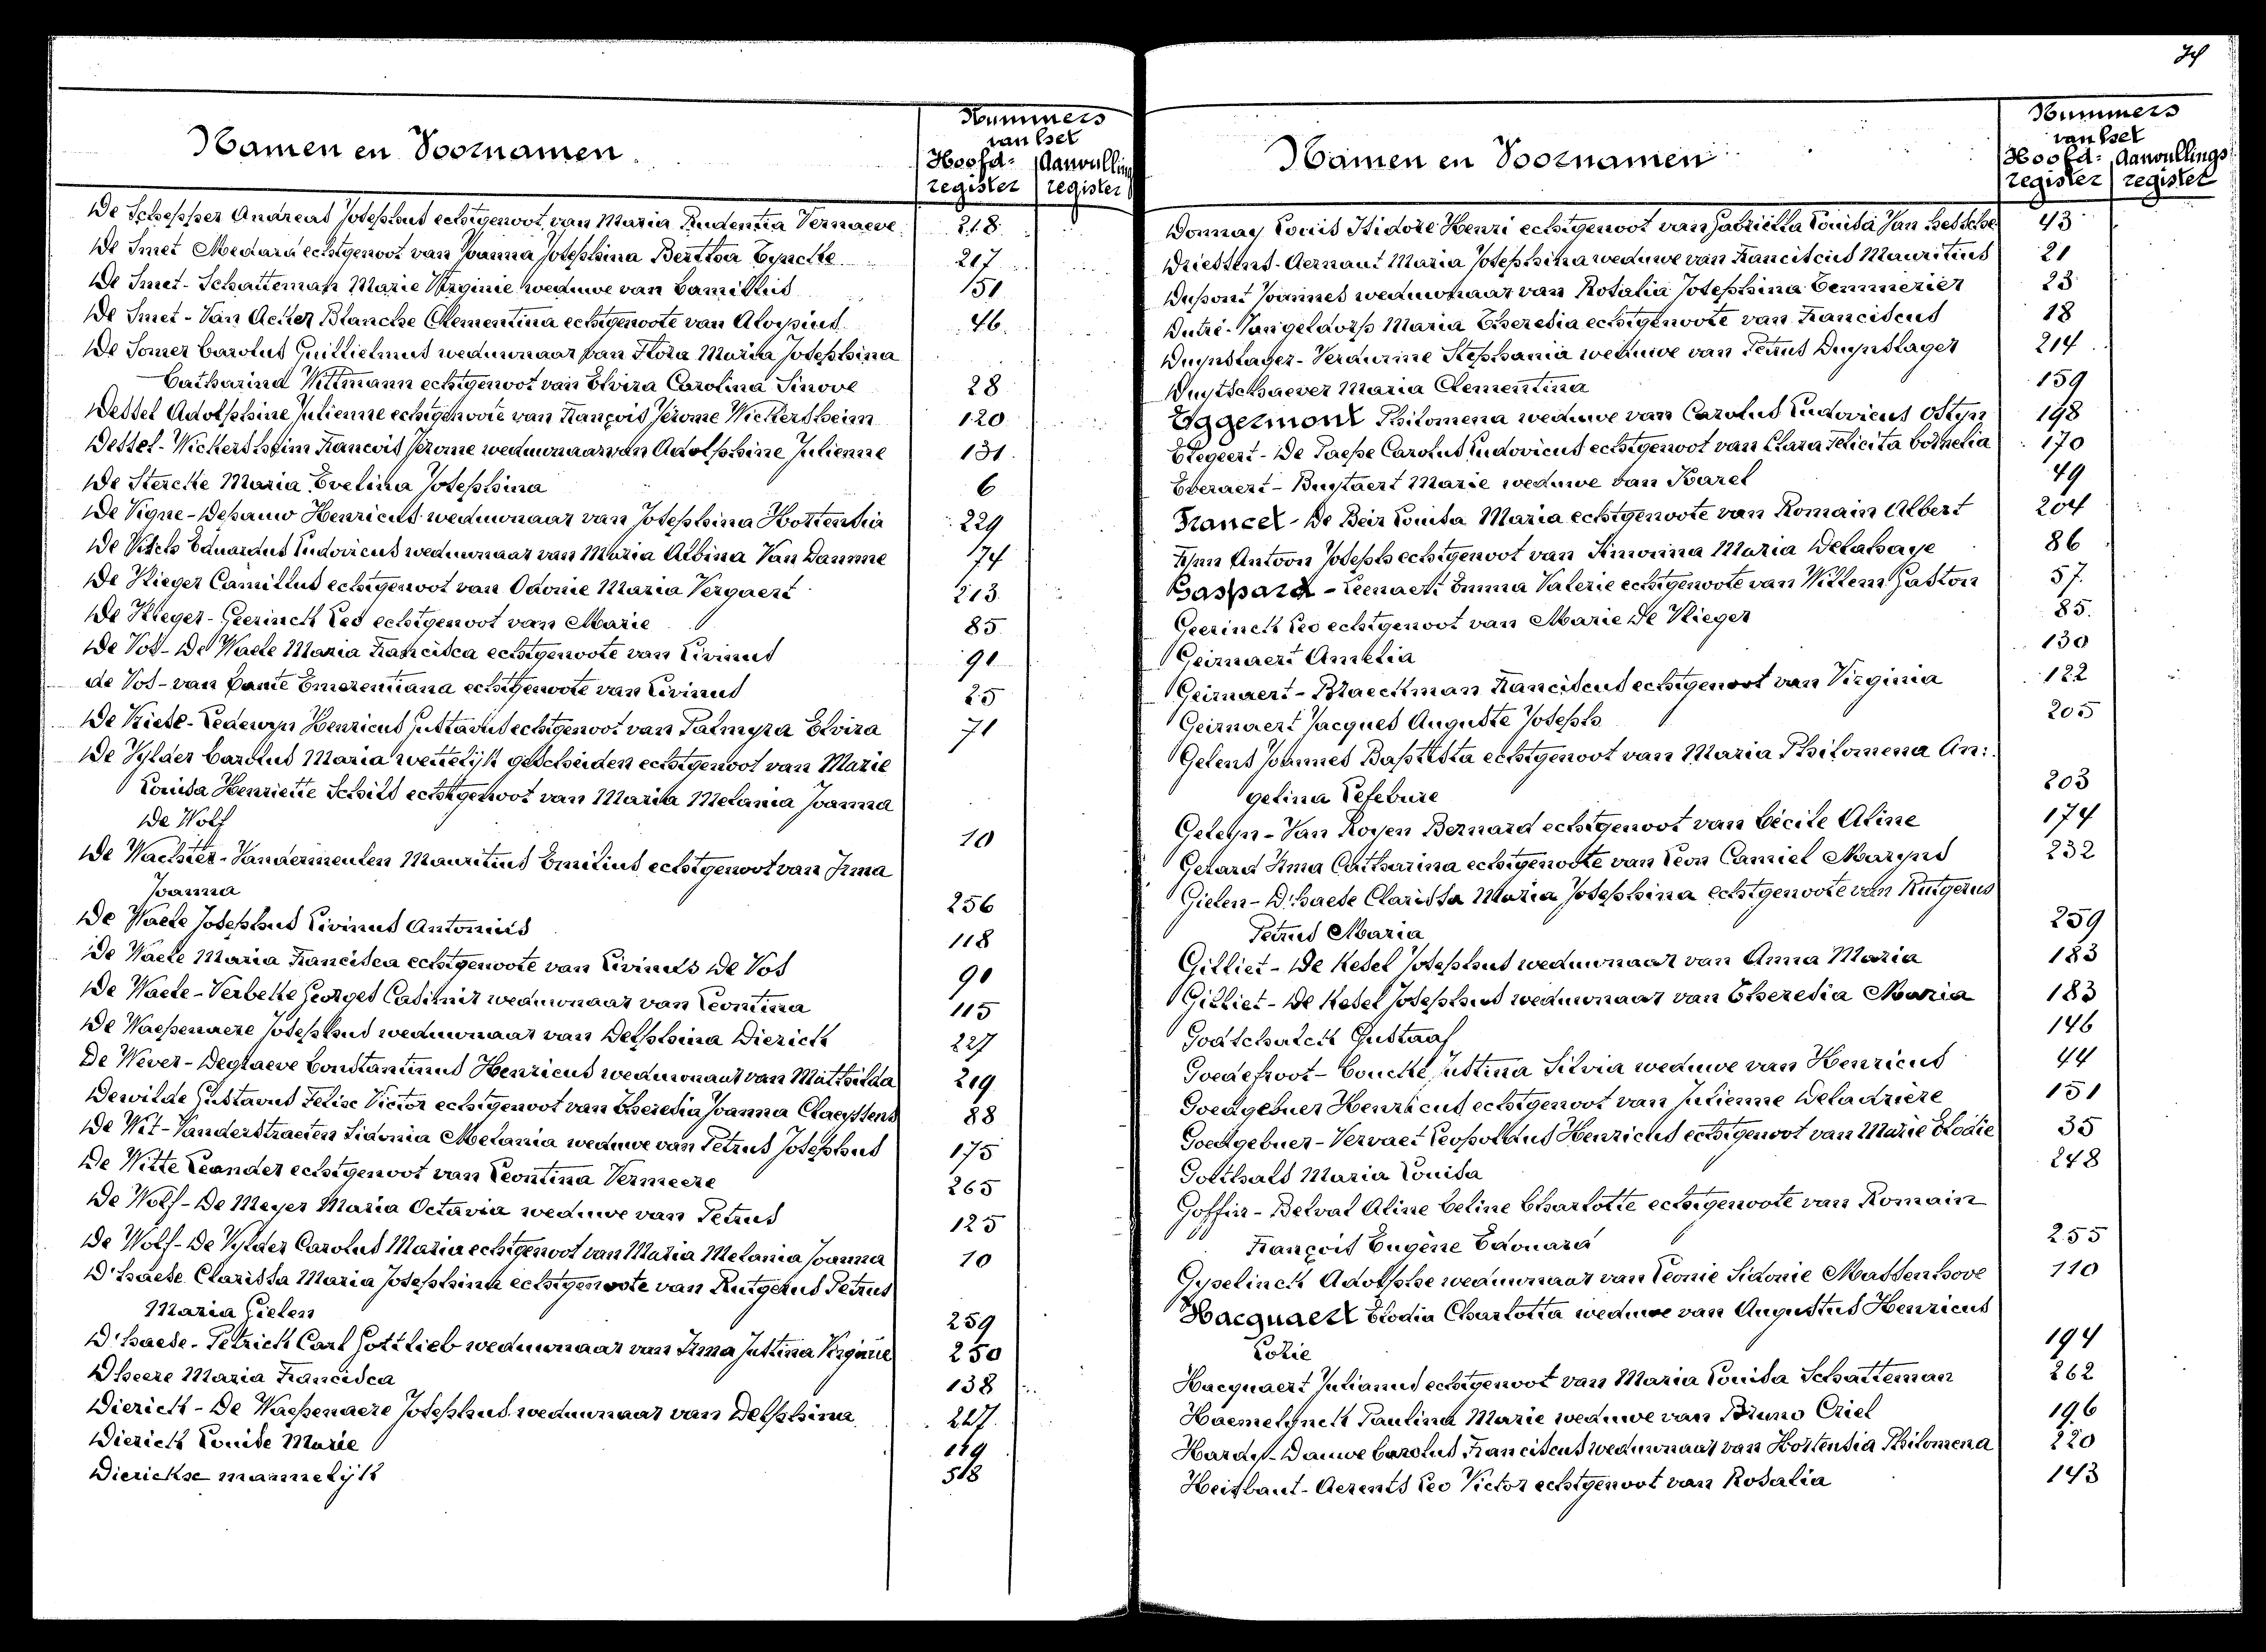 Namen en Voornamen.
Nummers
van het
Hoofd- Aanvulling
register register
De Schepper Andreas Josephus echtgenoot van Maria Prudentia Vernaeve 218
De Smet Medard echtgenoot van Joanna Josephina Bertha Eyncke 217
De Smet - Schatteman Marie Virginie weduwe van Camillus 151
De Smet - Van Acker Blanche Clementina echtgenoote van Aloysius 46
De Somer Carolus Guillielmus weduwnaar van Flora Maria Josephina
Catharina Wittmann echtgenoot van Elvira Carolina Sinove 28
Dessel Adolphine Julienne echtgenoote van François Jérome Wickersheim 120
Dessel - Wickersheim Francois Jérome weduwnaar van Adolphine Julienne 131
De Stercke Maria Evelina Josephina 6
De Vigne - Depauw Henricus weduwnaar van Josephina Hortensia 229
De Visch Eduardus Ludovicus weduwnaar van Maria Albina Van Damme 174
De Vlieger Camillus echtgenoot van Odonie Maria Vergaert 213
De Vlieger - Geerinck Leo echtgenoot van Marie 85
De Vos - De Waele Maria Francisca echtgenoote van Livinus 90
de Vos - van Damte Emerentiana echtgenoote van Livinus 25
De Vriese - Ledewyn Henricus Gustavus echtgenoot van Palmyra Elvira 71
De Vylder Carolus Maria wettelijk gescheiden echtgenoot van Marie
Louisa Henriette Schils echtgenoot van Maria Melania Joanna
De Wolf 10
De Wachter - Vandermeulen Mauritius Emilius echtgenoot van Irma
Joanna 256
De Waele Josephus Livinus Antonius 118
De Waele Maria Francisca echtgenoote van Livinus De Vos 90
De Waele - Verbeke Georges Casimir weduwnaar van Leontina 115
De Waepenaere Josephus weduwnaar van Delphina Dierick 227
De Wever - Degraeve Constantinus Henricus weduwnaar van Mathilda 219
Dewilde Gustavus Felix Victor echtgenoot van Theresia Joanna Claeyssens 88
De Wit - Vanderstraeten Sidonia Melania weduwe van Petrus Josephus 175
De Witte Leander echtgenoot van Leontina Vermeere 265
De Wolf - De Meyer Maria Octavia weduwe van Petrus 125
De Wolf - De Vylder Carolus Maria echtgenoot van Maria Melania Joanna 10
D'haese Clarissa Maria Josephina echtgenoote van Rutgerus Petrus
Maria Gielen 259
D'haese - Petrich Carl Gottlieb weduwnaar van Irma Justina Virginie 250
D'heere Maria Francisca 138
Dierick - De Waepenaere Josephus weduwnaar van Delphina 227
Dierick Louise Marie 119
Dierickse mannelijk 518
74
Namen en Voornamen
Nummers
van het
Hoofd- Aanvullings
register register
Donnay Louis Isidore Henri echtgenoot van Gabriella Louisa Van Hessche 43
Driessens - Aernaut Maria Josephina weduwe van Franciscus Mauritius 21
Dupont Joannes weduwnaar van Rosalia Josephina Temmerier 23
Dutré - Vangeldorp Maria Theresia echtgenoote van Franciscus 18
Duynslager - Verdurme Stephania weduwe van Petrus Duynslager 214
Duytschaever Maria Clementina 159
Eggermont Philomena weduwe van Carolus Ludovicus Ostyn 198
Elegeert - De Paepe Carolus Ludovicus echtgenoot van Clara Felicita Cornelia 170
Everaert - Buytaert Marie weduwe van Karel 49
Francet - De Beir Louisa Maria echtgenoote van Romain Albert 204
Fynn Antoon Joseph echtgenoot van Simonna Maria Delahaye 86
Gaspard - Leenaert Emma Valerie echtgenoote van Willem Gaston 57
Geerinck Leo echtgenoot van Marie De Vlieger 85.
Geirnaert Amelia 130
Geirnaert - Blaeckman Franciscus echtgenoot van Virginia 122
Geirnaert Jacques Auguste Joseph 205
Gelens Joannes Baptista echtgenoot van Maria Philomena An:
gelina Lefebure 203
Geleyn - Van Royen Bernard echtgenoot van Cécile Aline 174
Gerard Irma Catharina echtgenoote van Leon Camiel Maryns 232
Gielen - D'haese Clarissa Maria Josephina echtgenoote van Rutgerus
Petrus Maria 259
Gilliet - De Kesel Josephus weduwnaar van Anna Maria 183
Gilliet - De Kesel Josephus weduwnaar van Theresia Maria 183
Godtschalck Gustaaf 146
Goedefroot - Coucke Justina Silvia weduwe van Henricus 44
Goedgebuer Henricus echtgenoot van Julienne Deladrière 151
Goedgebuer - Vervaet Leopoldus Henricus echtgenoot van Marie Elodie 35
Goethals Maria Louisa 248
Goffin - Delval Aline Celine Charlotte echtgenoote van Romain
François Eugène Edouard 255
Gyselinck Adolphe weduwnaar van Leonie Sidonie Massenhove 110
Hacquaert Elodia Charlotta weduwe van Augustus Henricus
Lorie 194
Hacquaert Julianus echtgenoot van Maria Louisa Schatteman 262
Haemelynck Paulina Marie weduwe van Bruno Criel 196
Hardy - Dauwe Carolus Franciscus weduwnaar van Hortensia Philomena 220
Heirbaut - Aerents Leo Victor echtgenoot van Rosalia 143